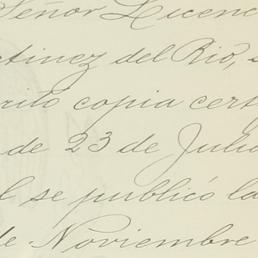 Señor Licenc
tinez del Rio, s
rito copia cert
de 23 de Julio
l se publicó la
de Noviembre